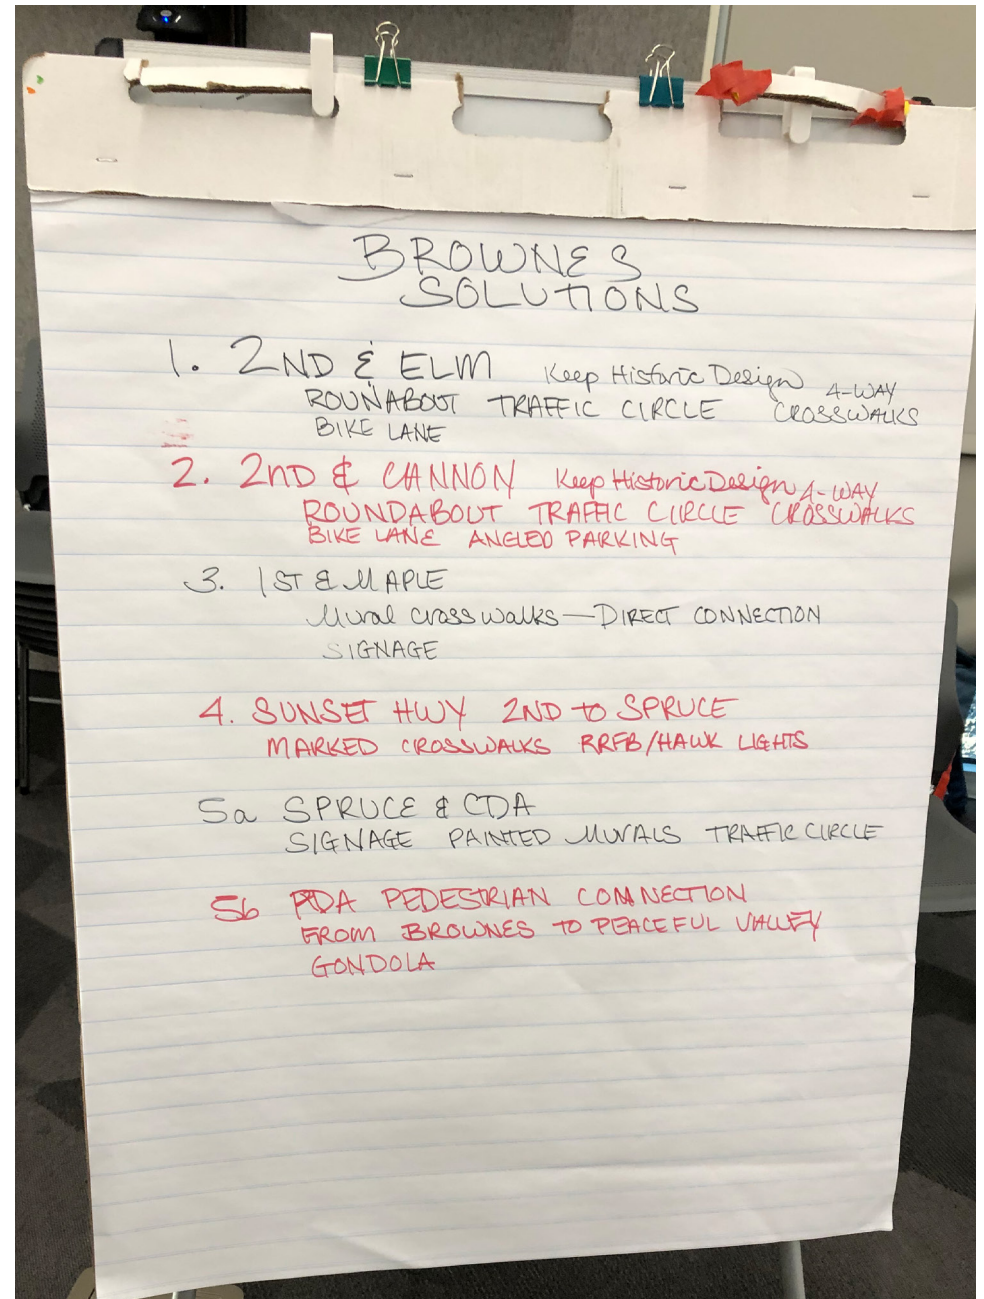 BROWNES
SOLUTIONS
1. 2ND & ELM Keep Historic Design 4-WAY
ROUNABOUT TRAFFIC CIRCLE CROSSWALKS
BIKE LANE
2. 2ND & CANNON Keep Historic Design 4-WAY
ROUNDABOUT TRAFFIC CIRCLE CROSSWALKS
BIKE LANE ANGLED PARKING
3. 1ST & MAPLE
Mural Crosswalks—DIRECT CONNECTION
SIGNAGE
4. SUNSET HWY 2ND to SPRUCE
MARKED CROSSWALKS RRFB/HAWK LIGHTS
5a SPRUCE & CDA
SIGNAGE PAINTED MURALS TRAFFIC CIRCLE
5b PEDESTRIAN CONNECTION
FROM BROWNES TO PEACEFUL VALLEY
GONDOLA